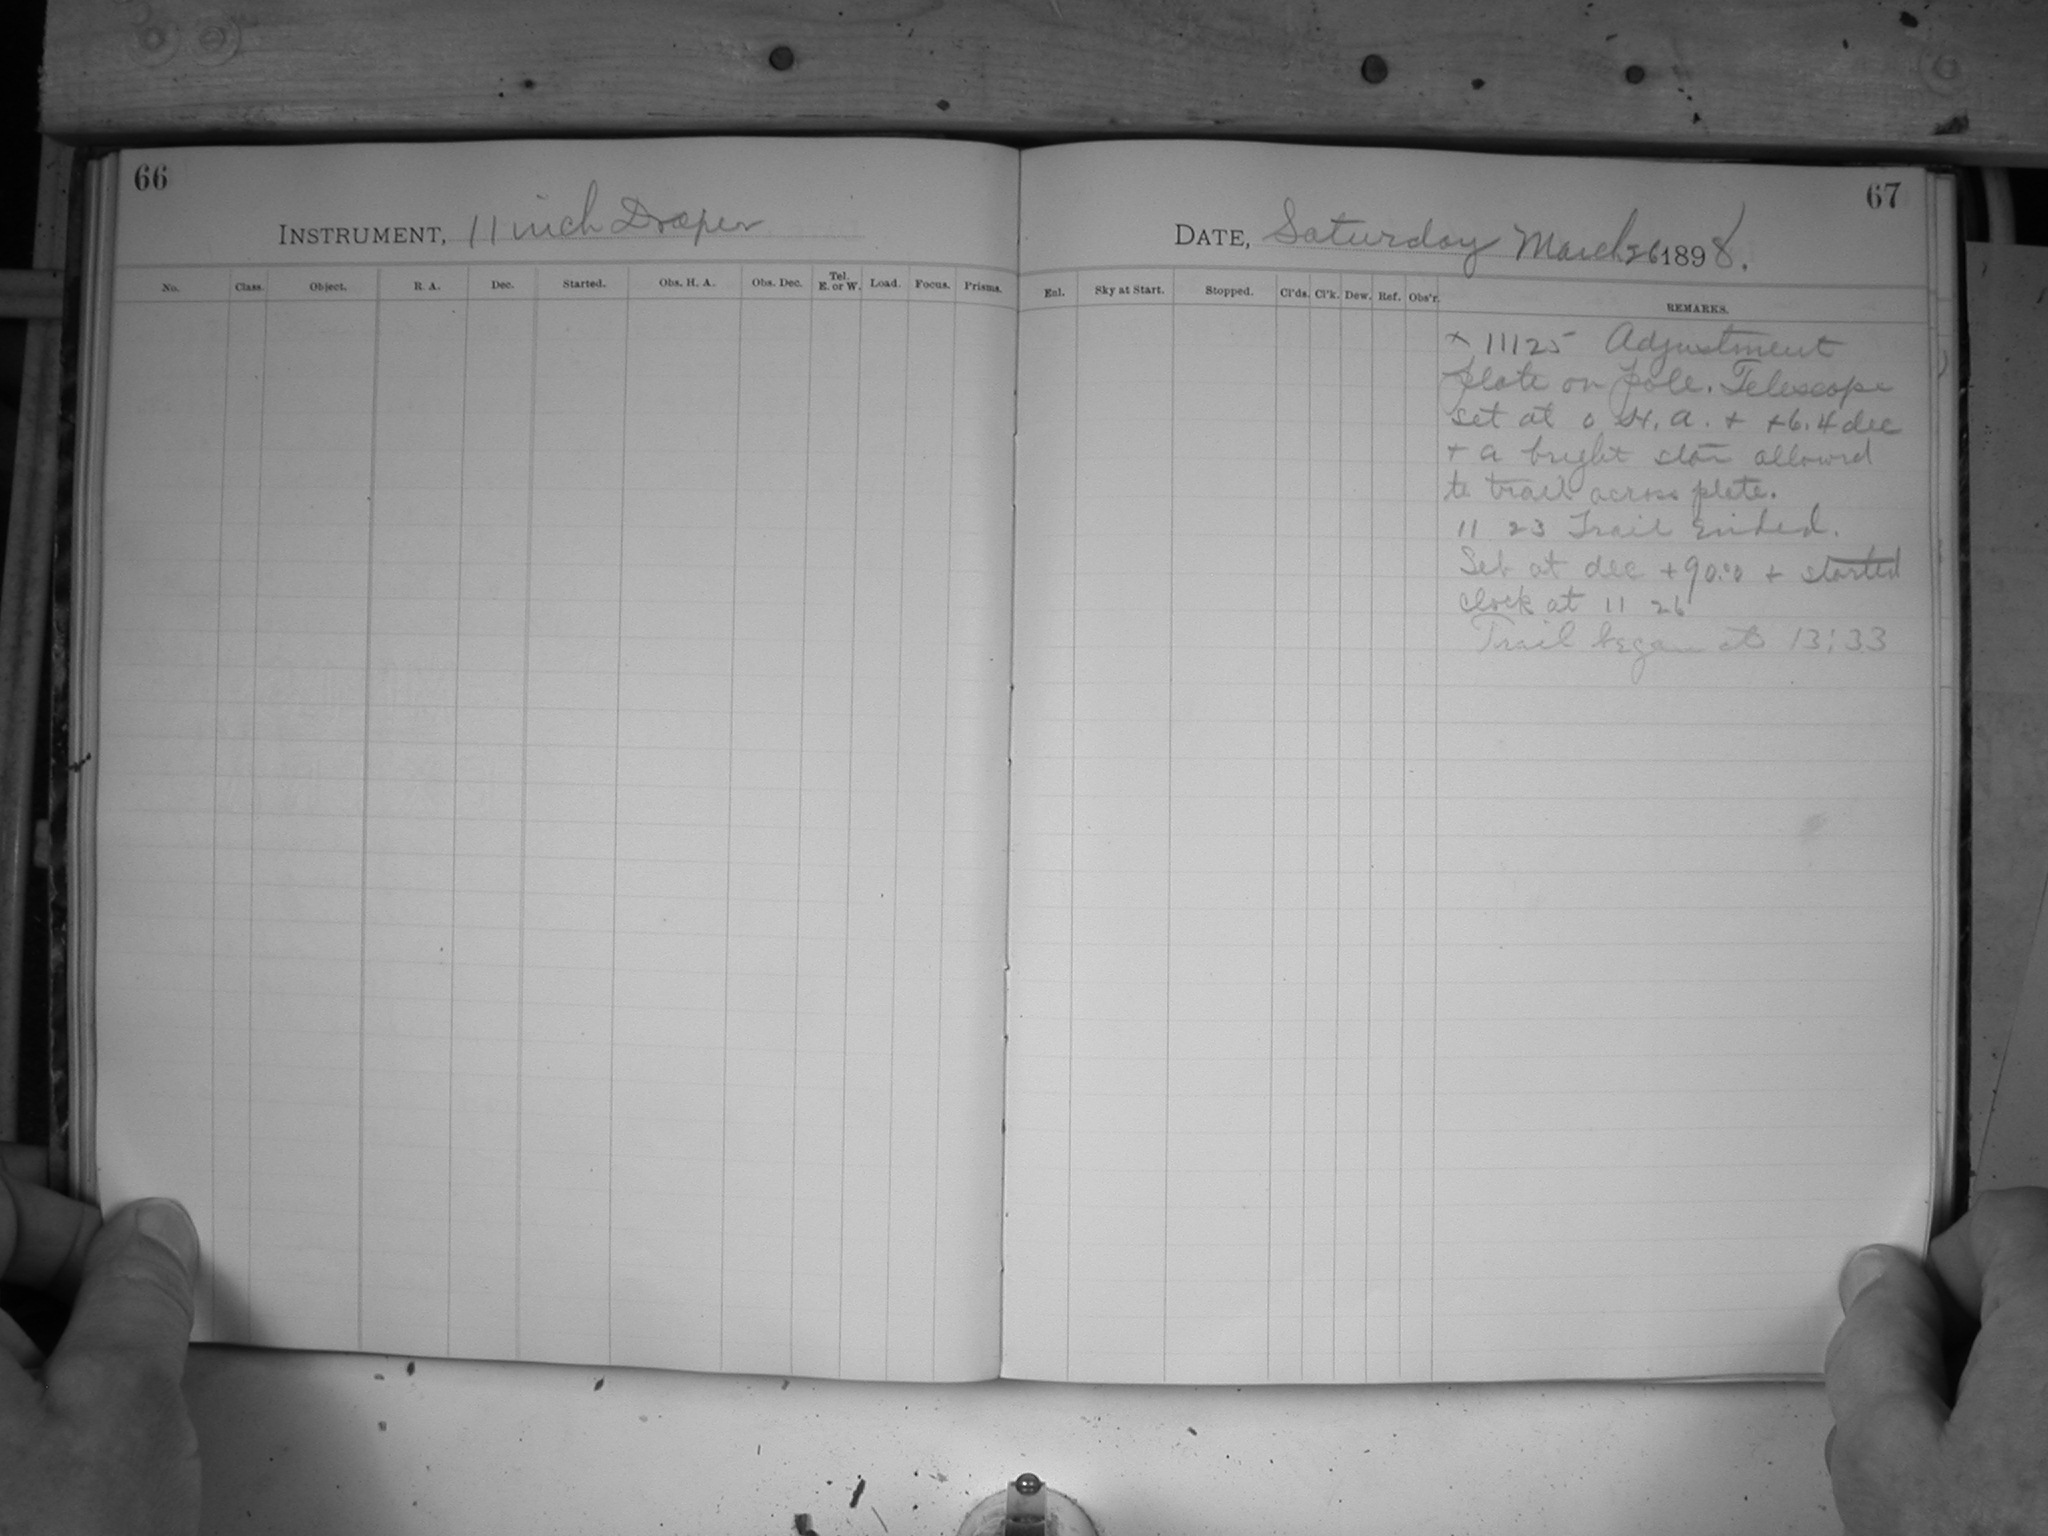 66
INSTRUMENT, 11 inch Draper
No. Class. Object. R. A. Dec. Started. Obs. H. A. Obs. Dec. Tel. E. or W. Load. Focus. Prisms.
67
DATE, Saturday March 26 1898.
Enl. Sky at Start. Stopped. Cl'ds. Cl'k. Dew. Ref. Obs'r. REMARKS.
x 11125 Adjustment
plate on pole. Telescope
set at 0 H. A. + +6.4 dec
+ a bright star allowed
to trail across plate.
11 23 Trail Ended.
Set at dec +90.0 + started
clock at 11 26
Trail began at 13:33